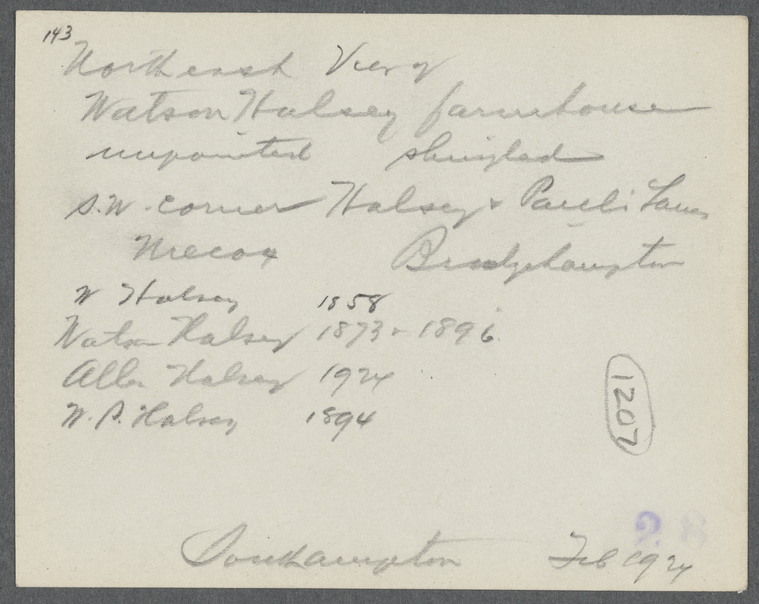 143
Northeast View of
Watson Halsey farmhouse
unpainted shingled
S.W. corner Halsey & Paul's Lanes
Mecox Bridgehampton
W Halsey 1858
Watson Halsey 1873 - 1896
Allen Halsey 1924
W. P. Halsey 1894
1207
28
Southampton Feb 1924